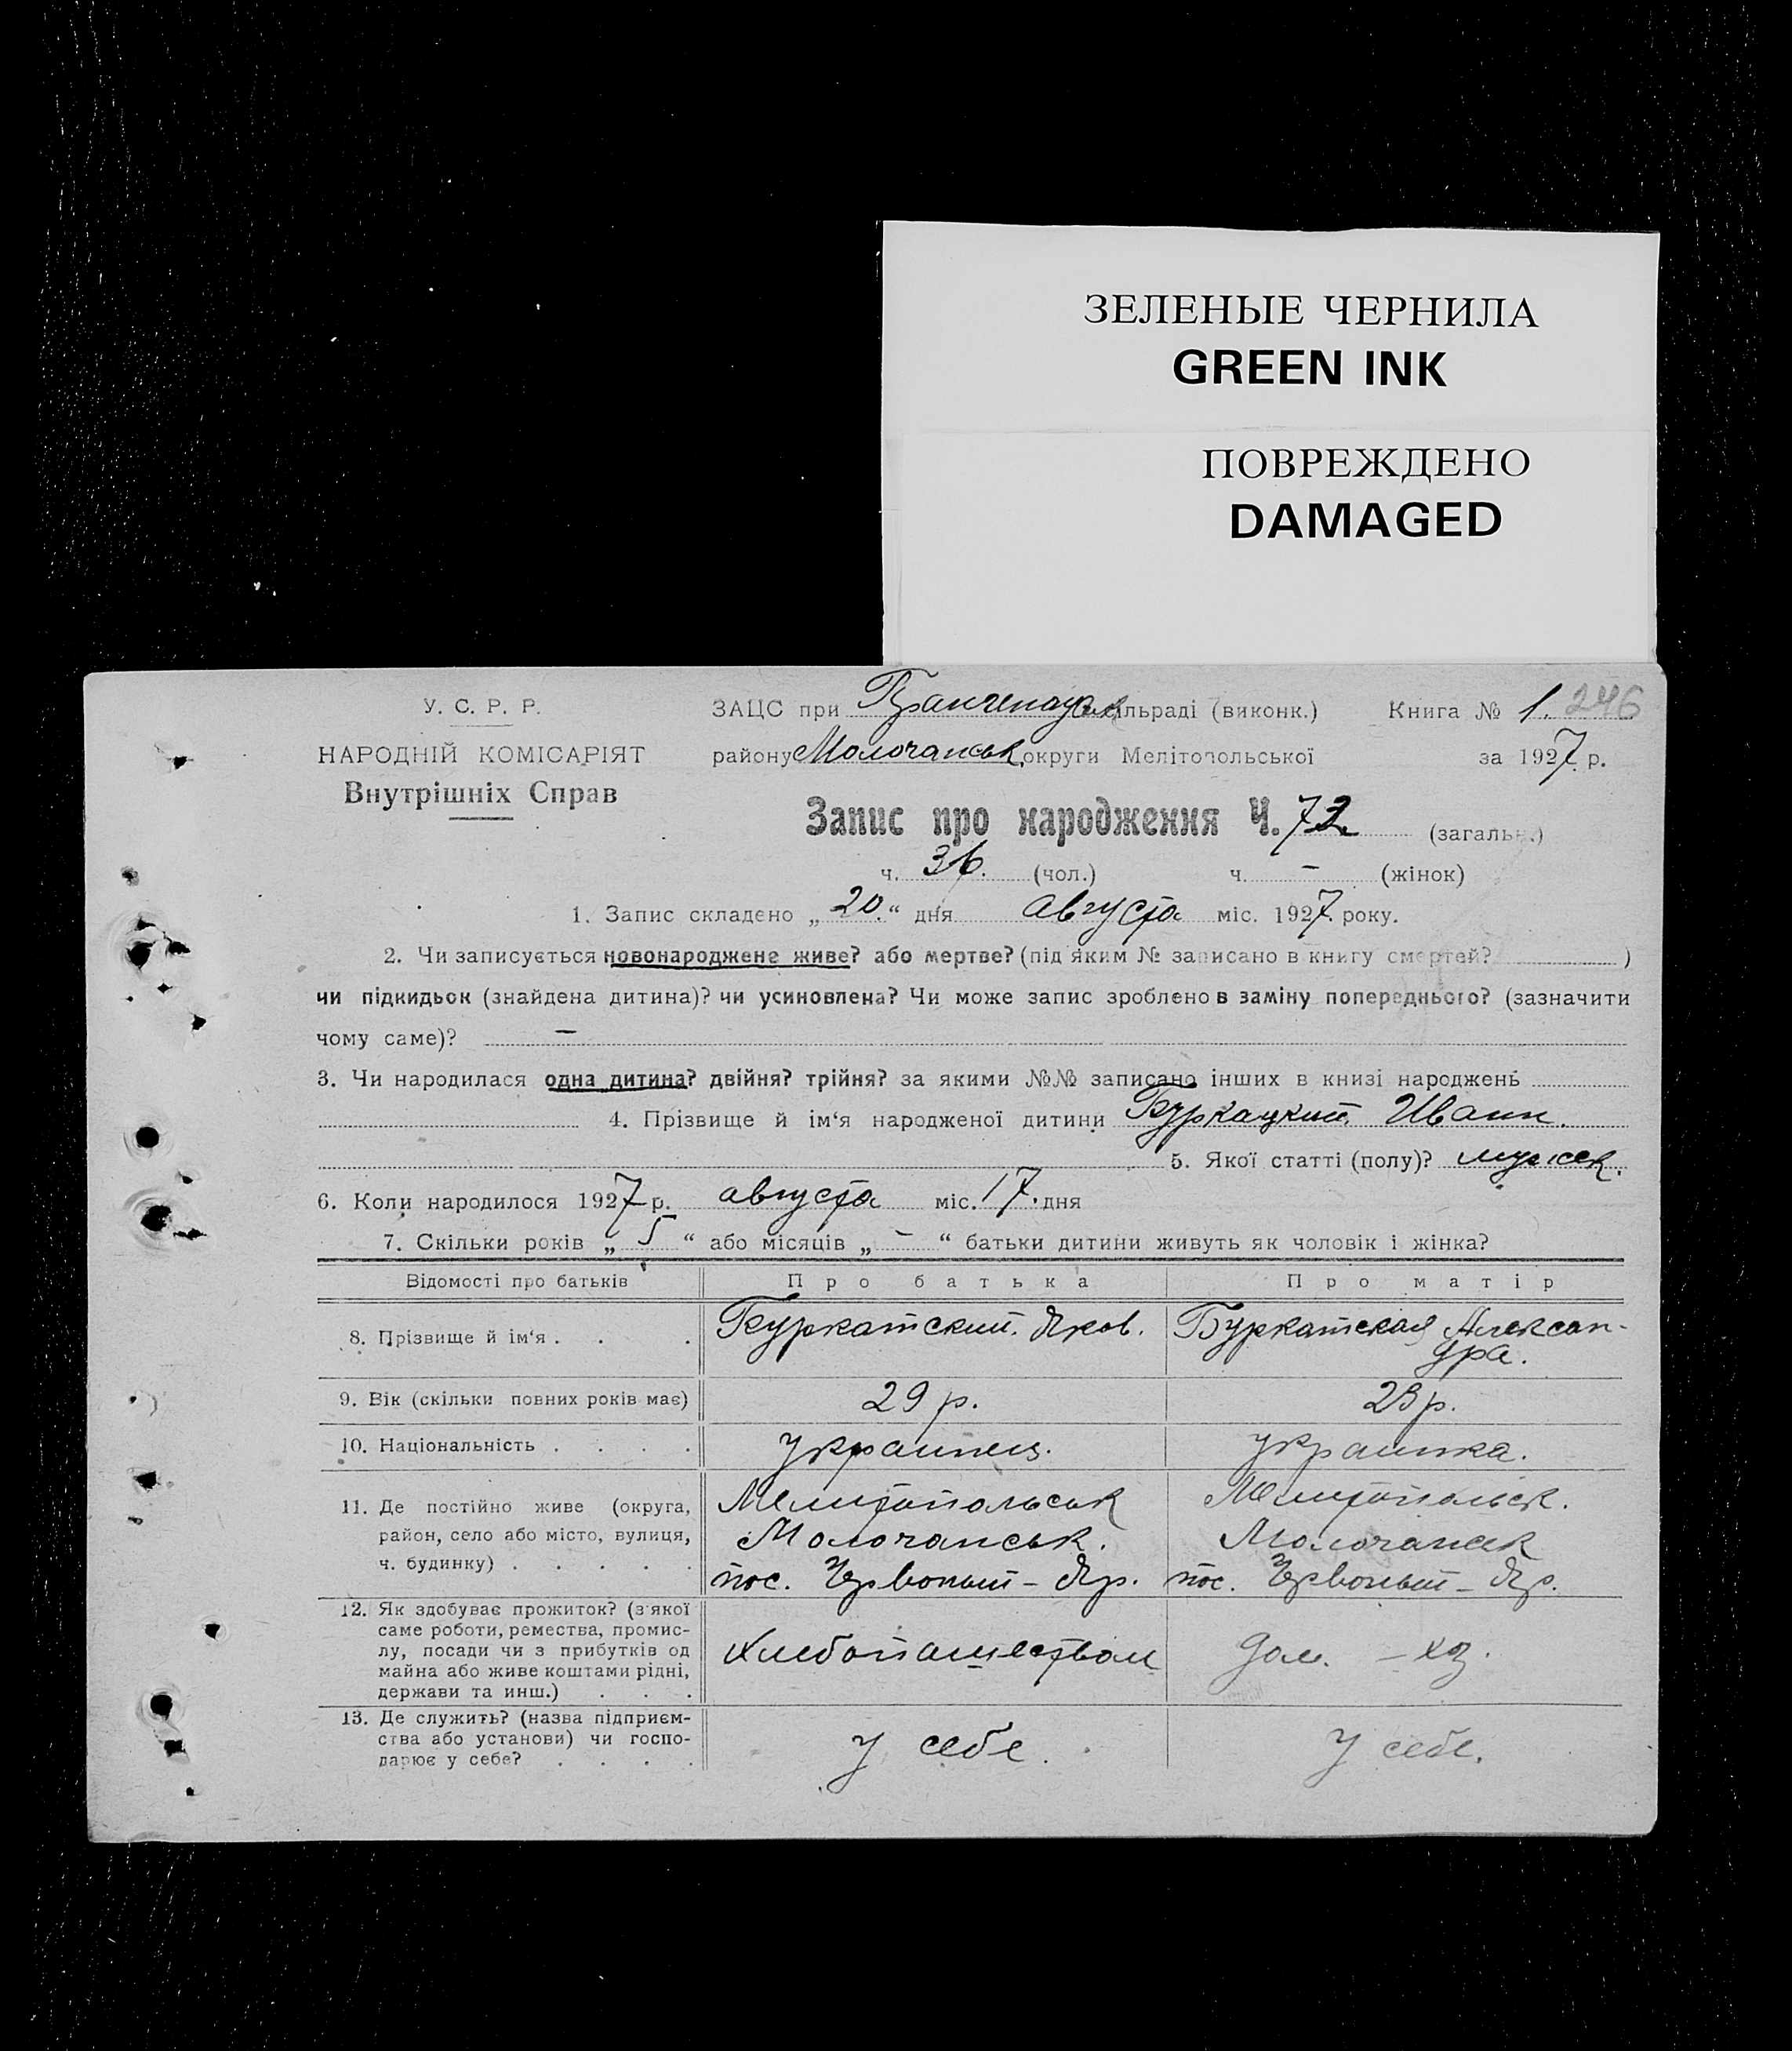 ЗЕЛЕНЫЕ ЧЕРНИЛА
GREEN INK
ПОВРЕЖДЕНО
DAMAGED
У. С. Р. Р.
НАРОДНІЙ КОМІСАРІЯТ
Внутрішніх Справ
ЗАЦС при сільраді (виконк.) Книга № 1. 246
району Молочанськ. округи Мелітопольської за 1927 р.
Запис про народження Ч. 72 (загальн.)
ч. 36. (чол.) ч. – (жінок)
1. Запис складено „20.“ дня августа міс. 1927. року.
2. Чи записується новонароджене живе? або мертве? (під яким № записано в книгу смертей? )
чи підкидьок (знайдена дитина)? чи усиновлена? Чи може запис зроблено в заміну попереднього? (зазначити
чому саме)? –
3. Чи народилася одна дитина? двійня? трійня? за якими №№ записано інших в книзі народжень
4. Прізвище й ім‘я народженої дитини Буркацкий Иван.
5. Якої статті (полу)? мужск.
6. Коли народилося 1927 р. августа міс. 17. дня
7. Скільки років „ 5 “ або місяців „ – “ батьки дитини живуть як чоловік і жінка?
Відомості про батьків Про батька Про матір
8. Прізвище й ім‘я . . . Буркатский. Яков. Буркатская Алексан-
дра.
9. Вік (скільки повних років має) 29 р. 23 р.
10. Національність . . . . украинец. украинка.
11. Де постійно живе (округа, Мелитопольськ Мелитопольск.
район, село або місто, вулиця, Молочанськ. Молочанск
ч. будинку) . . . . . пос. Червоный – Яр. пос. Червоный – Яр.
12. Як здобуває прожиток? (з якої
саме роботи, ремества, промис-
лу, посади чи з прибутків од Хлебопашеством Дом. – хоз.
майна або живе коштами рідні,
держави та инш.) . . .
13. Де служить? (назва підприєм-
ства або установи) чи госпо- У себе. У себе.
дарює у себе? . . . .